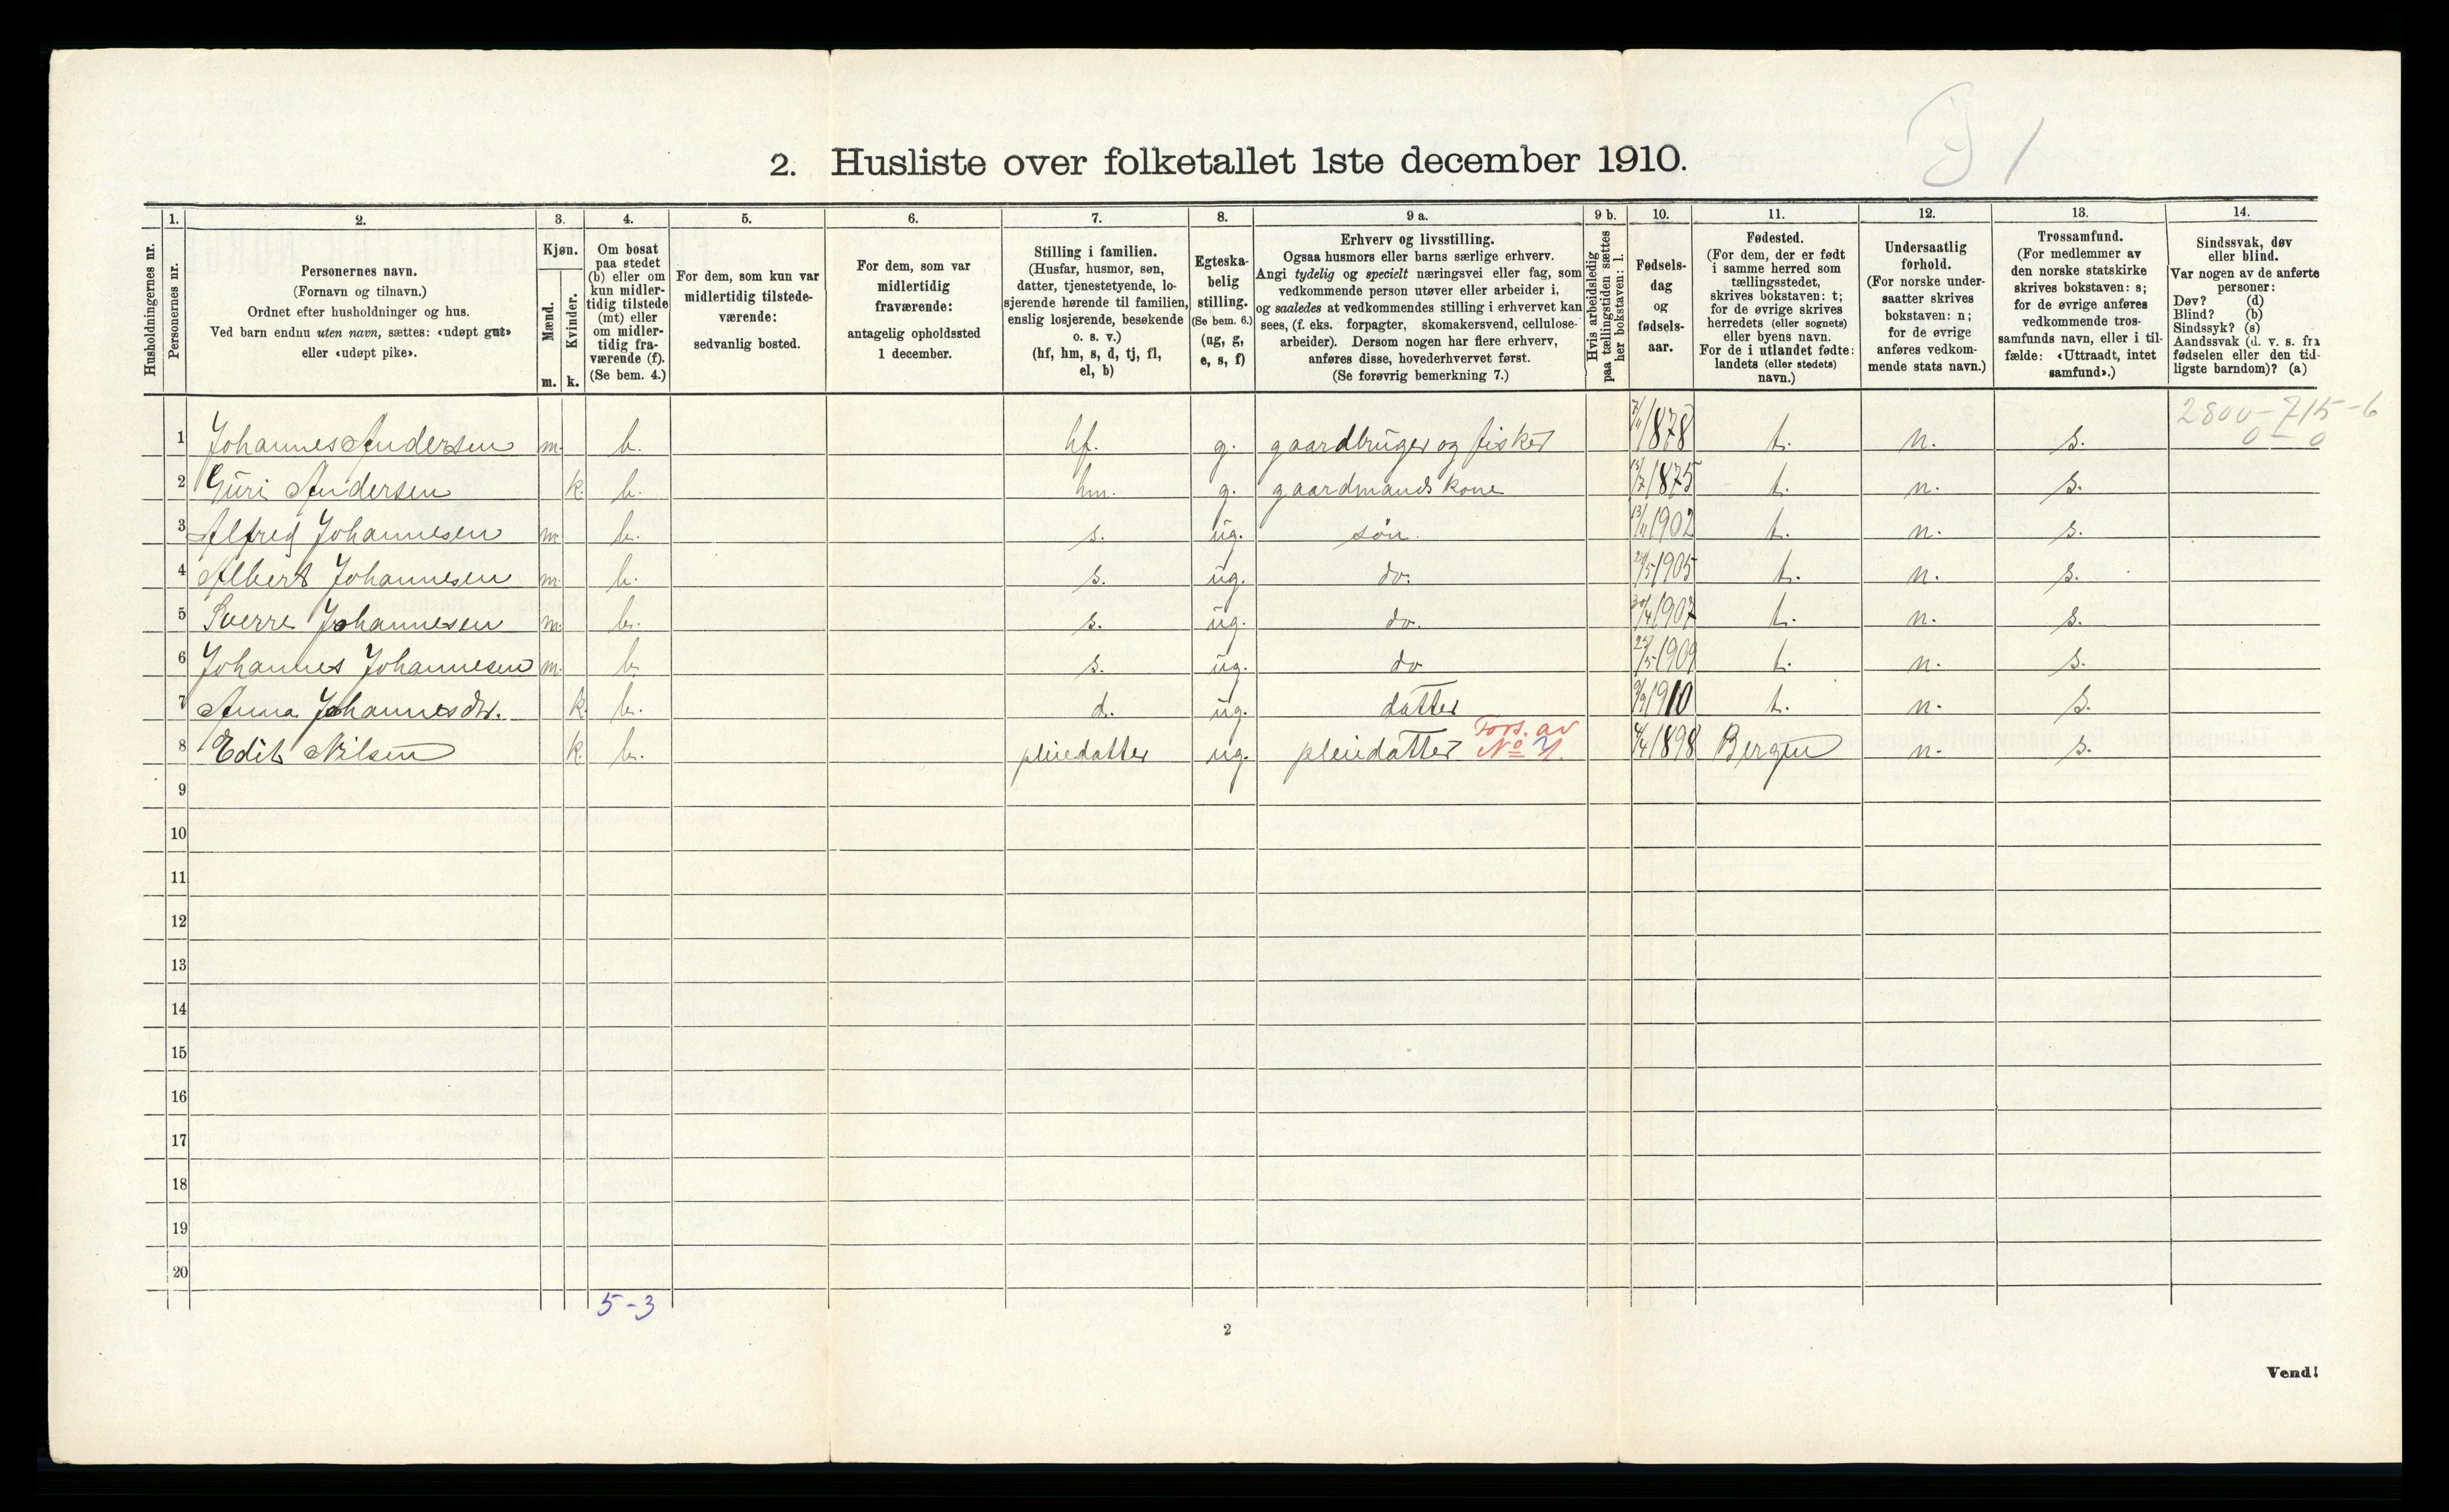 2. Husliste over folketallet 1ste december 1910.
1. 2. 3. 4. 5. 6. 7. 8. 9 a. 9 b. 10. 11. 12. 13. 14.
Husholdningernes nr.
Personernes nr.
Personernes navn.
(Fornavn og tilnavn.)
Ordnet efter husholdninger og hus.
Ved barn endnu uten navn, sættes: «udøpt gut»
eller «udøpt pike».
Kjøn.
Mænd.
Kvinder.
m. k.
Om bosat
paa stedet
(b) eller om
kun midler-
tidig tilstede
(mt) eller
om midler-
tidig fra-
værende (f).
(Se bem. 4.)
For dem, som kun var
midlertidig tilstede-
værende:
sedvanlig bosted.
For dem, som var
midlertidig
fraværende:
antagelig opholdssted
1 december.
Stilling i familien.
(Husfar, husmor, søn,
datter, tjenestetyende, lo-
sjerende hørende til familien,
enslig losjerende, besøkende
o. s. v.)
(hf, hm, s, d, tj, fl,
el, b)
Egteska-
belig
stilling.
(Se bem. 6.)
(ug, g,
e, s, f)
Erhverv og livsstilling.
Ogsaa husmors eller barns særlige erhverv.
Angi tydelig og specielt næringsvei eller fag, som
vedkommende person utøver eller arbeider i,
og saaledes at vedkommendes stilling i erhvervet kan
sees, (f. eks. forpagter, skomakersvend, cellulose-
arbeider). Dersom nogen har flere erhverv,
anføres disse, hovederhvervet først.
(Se forøvrig bemerkning 7.)
Hvis arbeidsledig
paa tællingstiden sættes
her bokstaven: l.
Fødsels-
dag
og
fødsels-
aar.
Fødested.
(For dem, der er født
i samme herred som
tællingsstedet,
skrives bokstaven: t;
for de øvrige skrives
herredets (eller sognets)
eller byens navn.
For de i utlandet fødte:
landets (eller stedets)
navn.)
Undersaatlig
forhold.
(For norske under-
saatter skrives
bokstaven: n;
for de øvrige
anføres vedkom-
mende stats navn.)
Trossamfund.
(For medlemmer av
den norske statskirke
skrives bokstaven: s;
for de øvrige anføres
vedkommende tros-
samfunds navn, eller i til-
fælde: «Uttraadt, intet
samfund».)
Sindssvak, døv
eller blind.
Var nogen av de anførte
personer:
Døv? (d)
Blind? (b)
Sindssyk? (s)
Aandssvak (d. v. s. fra
fødselen eller den tid-
ligste barndom)? (a)
2800-715-6
0-0
1 Johannes Andersen m. b. hf. g. gaardbruger og fisker 7/11 1878 t. n. s.
2 Guri Andersen k. b. hm. g. gaardmands kone 1875 t. n. s.
3 Alfred Johannesen m. b. s. ug. søn. 13/11 1902 t. n. s.
4 Albert Johannesen m. b. s. ug. do. 1905 t. n. s.
5 Sverre Johannesen m. b. s. ug. do. 30/4 1907 t. n. s.
6 Johannes Johannesen m. b. s. ug. do 1909 t. n. s.
7 Anna Johannesdtr. k. b. d. ug. datter 9/9 1910 t. n. s.
Fors. av
8 Edit Nilsen k. b. pleiedatter ug. pleiedatter 1898 Bergen n. s.
9
10
11
12
13
14
15
16
17
18
19
20
5-3
2
Vend!